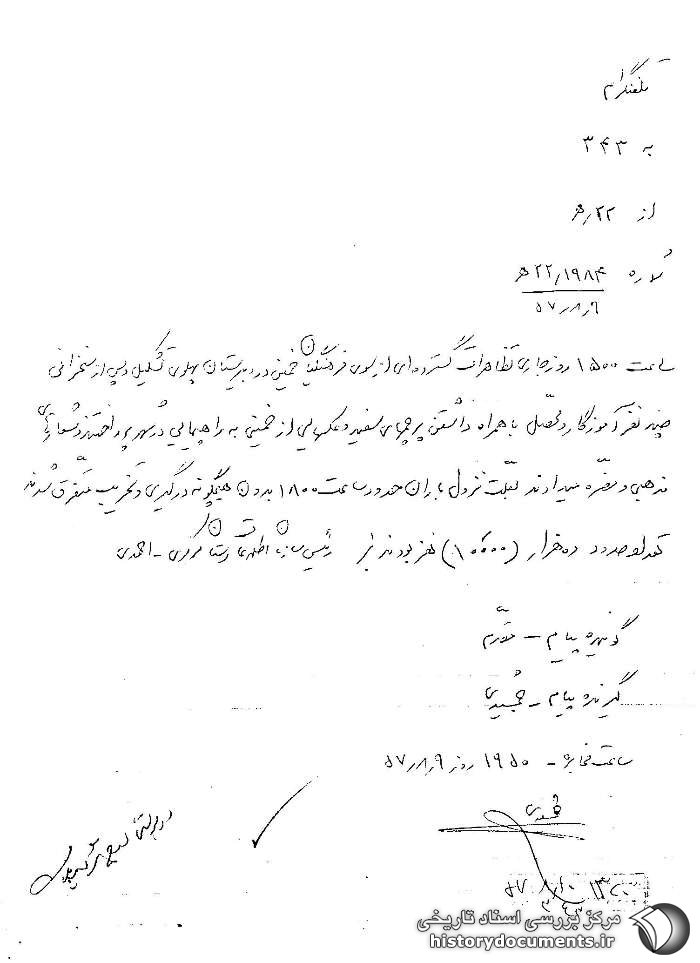 تلفنگرام
به ۳۴۳
از ۲۲/ﻫ
شماره ۲۲/۱۹۸۴ﻫ
۵۷/۸/۹
ساعت ۱۵۰۰ روز جاری تظاهرات گسترده‌ای از سوی فرهنگیان خمینی در دبیرستان پهلوی تشکیل و پس از سخنرانی
چند نفر آموزگار و محصل با همراه داشتن پرچمهای سفید و عکسهایی از خمینی به راهپیمایی در شهر پرداختند و شعارهای
مذهبی و متفرقه میدادند بعلت نزول باران حدود ساعت ۱۸۰۰ بدون هیچگونه درگیری و تخریب متفرق شدند
تعداد حدود ده هزار (۱۰۰۰۰) نفر بودند رئیس سازمان اطلاعات و امنیت مرکزی - احمدی
گوینده پیام - مقدم
گیرنده پیام - جمشیدی
ساعت مخابره - ۱۹۵۰ روز ۵۷/۸/۹
مرکز بررسی اسناد تاریخی
historydocuments.ir